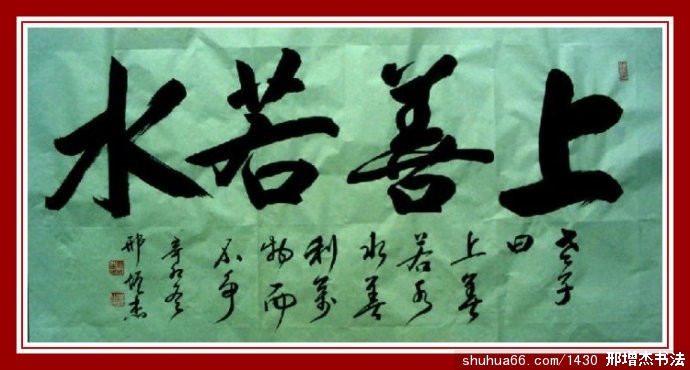 上善若水
老子
曰
上善
若水
水善
利萬
物而
不争
辛卯冬
邢增杰
shuhua66.com/1430 邢增杰书法